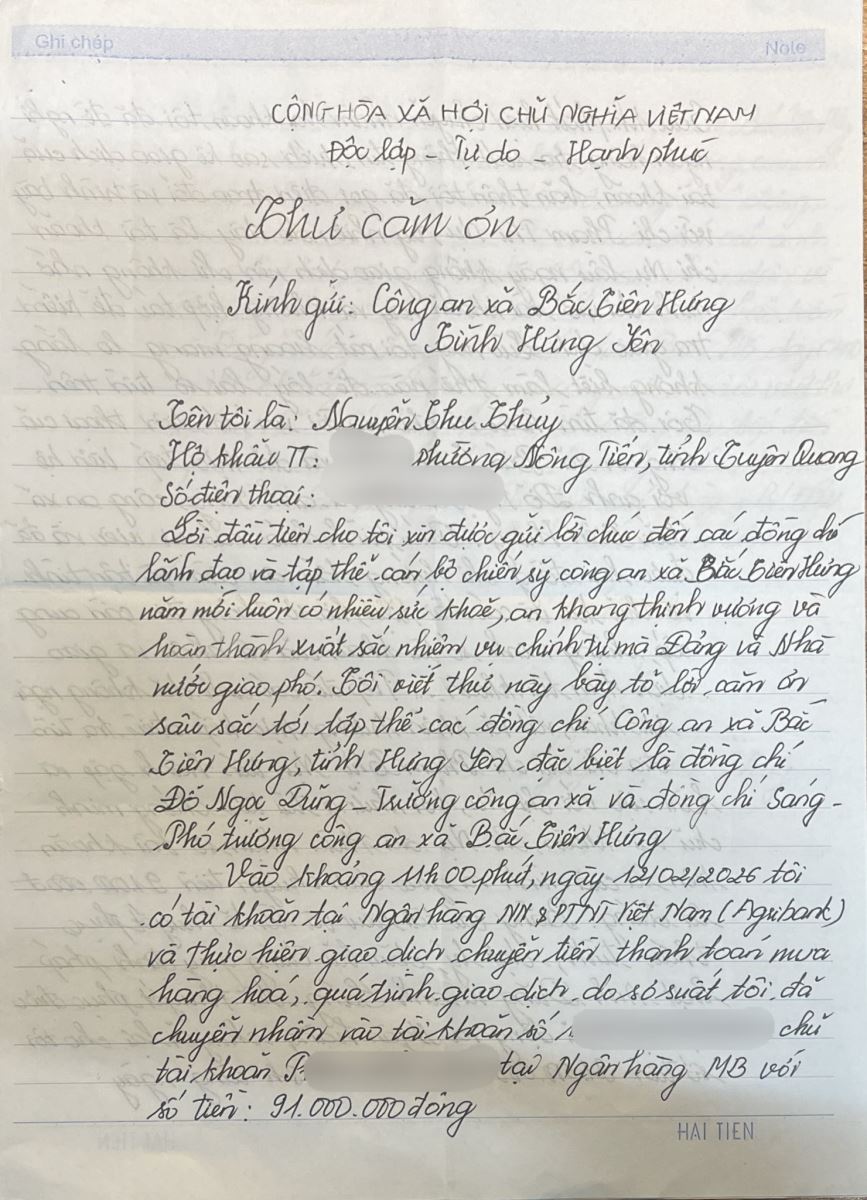 Ghi chép
Note
CỘNG HÒA XÃ HỘI CHỦ NGHĨA VIỆT NAM
Độc lập - Tự do - Hạnh phúc
Thư cảm ơn
Kính gửi: Công an xã Bắc Tiên Hưng
Tỉnh Hưng Yên
Tên tôi là: Nguyễn Thu Thủy
Hộ khẩu TT: phường Nông Tiến, tỉnh Tuyên Quang
Số điện thoại:
Lời đầu tiên cho tôi xin được gửi lời chúc đến các đồng chí
lãnh đạo và tập thể cán bộ chiến sỹ công an xã Bắc Tiên Hưng
năm mới luôn có nhiều sức khoẻ, an khang thịnh vượng và
hoàn thành xuất sắc nhiệm vụ chính trị mà Đảng và Nhà
nước giao phó. Tôi viết thư này bày tỏ lời cảm ơn
sâu sắc tới tập thể các đồng chí Công an xã Bắc
Tiên Hưng, tỉnh Hưng Yên đặc biệt là đồng chí
Đỗ Ngọc Dũng - Trưởng công an xã và đồng chí Sang -
Phó trưởng công an xã Bắc Tiên Hưng
Vào khoảng 11h 00 phút, ngày 12/02/2026 tôi
có tài khoản tại Ngân hàng NN & PTNT Việt Nam (Agribank)
và thực hiện giao dịch chuyển tiền thanh toán mua
hàng hoá, quá trình giao dịch do sơ suất tôi đã
chuyển nhầm vào tài khoản số chủ
tài khoản P. tại Ngân hàng MB với
số tiền: 91.000.000 đồng
HẢI TIẾN